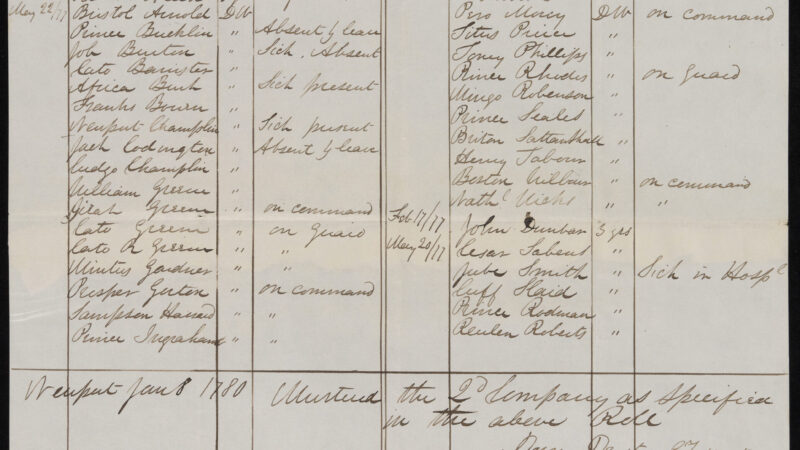 May 22/77 Bristol Arnold DW
Prince Bucklin " Absent by leave
Job Burton " Sick. Absent
Cato Banister "
Africa Burk " Sick present
Franks Bourn "
Newport Champlin " Sick present
Jack Codington " Absent by leave
Cudgo Champlin "
William Green "
Greene " on command
Cato Greene " on Guard
Cato Greene " "
Mintus Gardner " "
Prosper Gorton " on command
Sampson Hazard " "
Prince Ingraham " "
Piro Morey DW on command
Titus Peirce "
Toney Phillips "
Prince Rhodes " on Guard
Mingo Robenson "
Prince Seales "
Briton Saltonstall "
Henry Tabour "
Boston Wilbour " on command
Nathl " "
Feb 17/77 John Dunbar 3 yrs
May 20/77 Cesar Sabens "
Jube Smith " Sick in Hospl
Cuff Slaid "
Prince Rodman "
Reuben Roberts "
Newport Jan 8 1780 Mustered the 2d Company as specified
in the above Roll